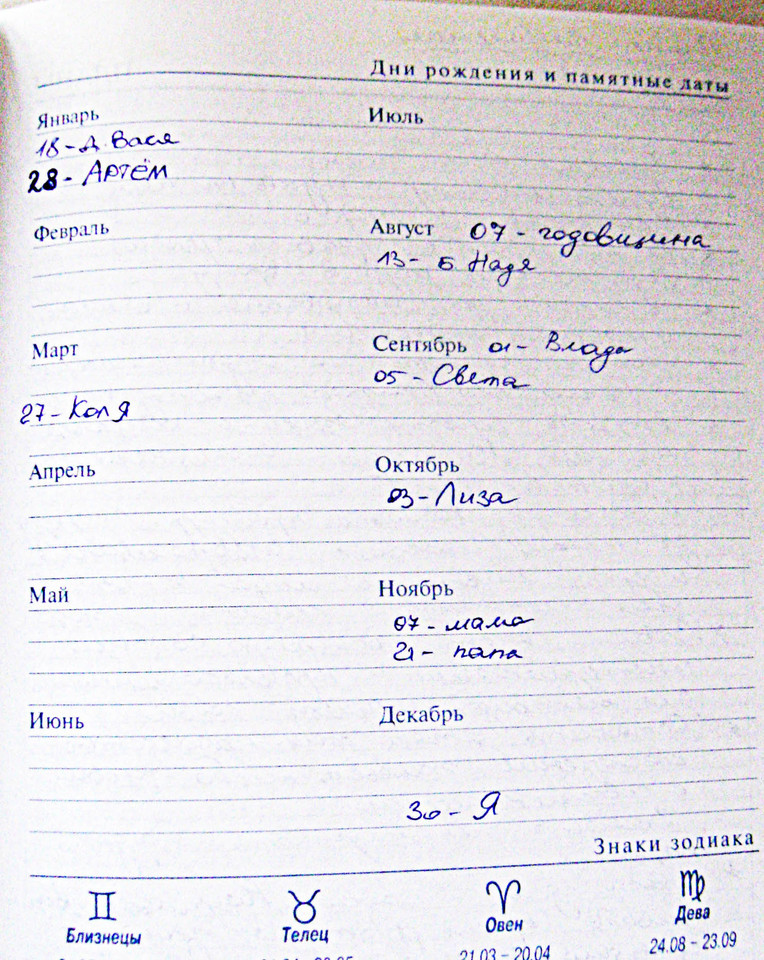 Дни рождения и памятные даты
Январь
18 - д. Вася
28 - АРТЁМ
Февраль
Март
27 - Коля
Апрель
Май
Июнь
Июль
Август 07 - годовщина
13 - Б Надя
Сентябрь 01 - Влада
05 - Света
Октябрь
03 - Лиза
Ноябрь
07 - мама
21 - папа
Декабрь
30 - Я
Знаки зодиака
Близнецы
Телец
Овен
21.03 - 20.04
Дева
24.08 - 23.09